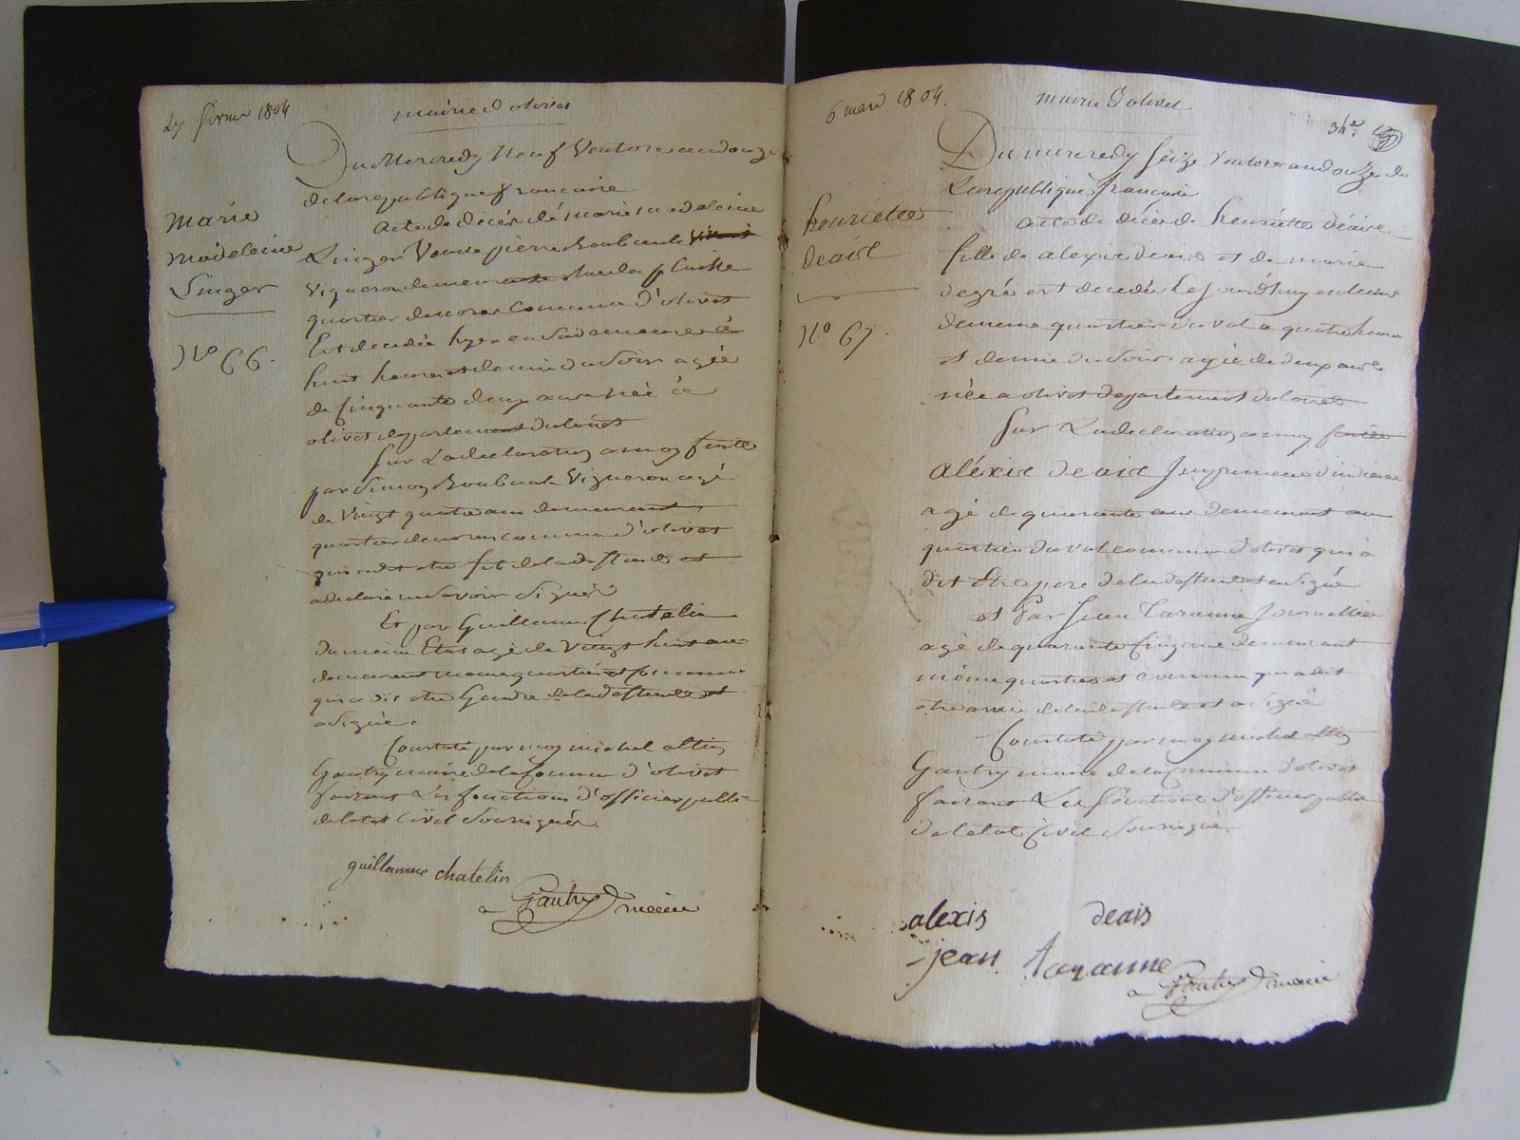 27 fevrier 1804
mairie d olivet
Du Mercredy Neuf Ventose an douze
de la republique francaise
marie
madeleine
Linger
No 66.
acte de décès de marie madeleine
Linger Veuve pierre Boubault
Vigneron demeurante
quartier commune d'olivet
Est decedée hyer en sa demeure à
huit heures et demie du Soir agée
de Cinquante deux ans née à
olivet departement du loiret
Sur La declaration a moy faite
par Simon Boubault Vigneron agé
de Vingt quatre ans demeurant
quartier commune d'olivet
qui a dit etre fils de la deffunte et
a declaré ne Savoir Signer
Et par Guillaume Chatelin
du meme Etat agé de Vingt huit ans
demeurant meme quartier et Commune
qui a dit etre Gendre de la deffunte et
a Signé.
Constaté par moy michel altin
Gautry maire de la Commune d'olivet
faisant Les fonctions d'officier public
de l'etat Civil Soussigné
guillaume chatelin
Gautry maire
6 mars 1804.
mairie d'olivet
Du mercredy Seize Ventose an douze de
La republique francaise
henriette
deair
No 67.
acte de décès de henriette déair
fille de alexis deair et de marie
degré est decedée Le jourd'huy en leur
demeure quartier du val a quatre heures
et demie du Soir agée de deux ans
née a olivet departement du loiret
Sur La declaration a moy faite
aléxis deair
agé de quarante ans demeurant au
quartier du val commune d'olivet qui a
dit Etre pere de la deffunte et a Signé
et Par Jean Taranne Journallier
agé de quarante Cinq ans demeurant
même quartier et commune qui a dit
etre amie de la deffunte et a Signé
Constaté par moy michel altin
Gautry maire de la Commune d'olivet
faisant Les fonctions d'officier public
de l'etat Civil Soussigné
alexis deais
jean taranne
Gautry maire